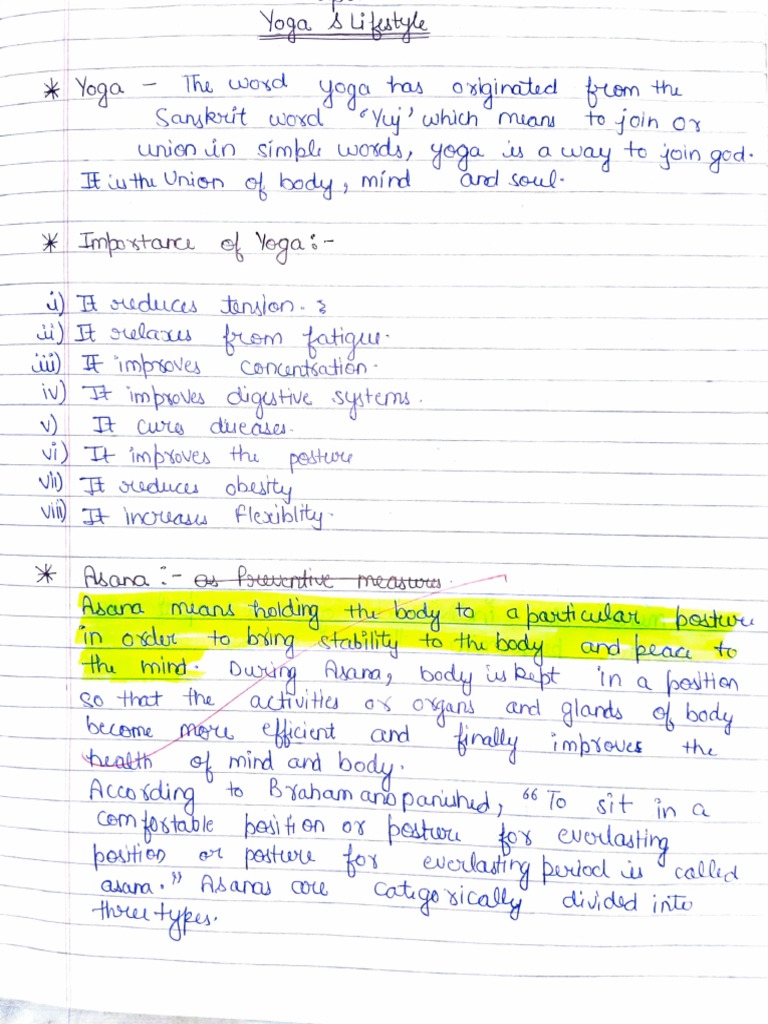 Yoga & Lifestyle
* Yoga - The word yoga has originated from the
Sanskrit word 'Yuj' which means to join or
union in simple words, yoga is a way to join god.
It is the Union of body, mind and soul.
* Importance of Yoga:-
i) It reduces tension.
ii) It relaxes from fatigue.
iii) It improves concentration.
iv) It improves digestive systems.
v) It cures diseases.
vi) It improves the posture
vii) It reduces obesity
viii) It increases flexiblity.
* Asana :- as Preventive measures.
Asana means holding the body to a particular posture
in order to bring stability to the body and peace to
the mind. During Asana, body is kept in a position
so that the activities or organs and glands of body
become more efficient and finally improves the
health of mind and body.
According to Brahamanopanished, "To sit in a
comfortable position or posture for everlasting
position or posture for everlasting period is called
asana." Asanas are categorically divided into
three types.